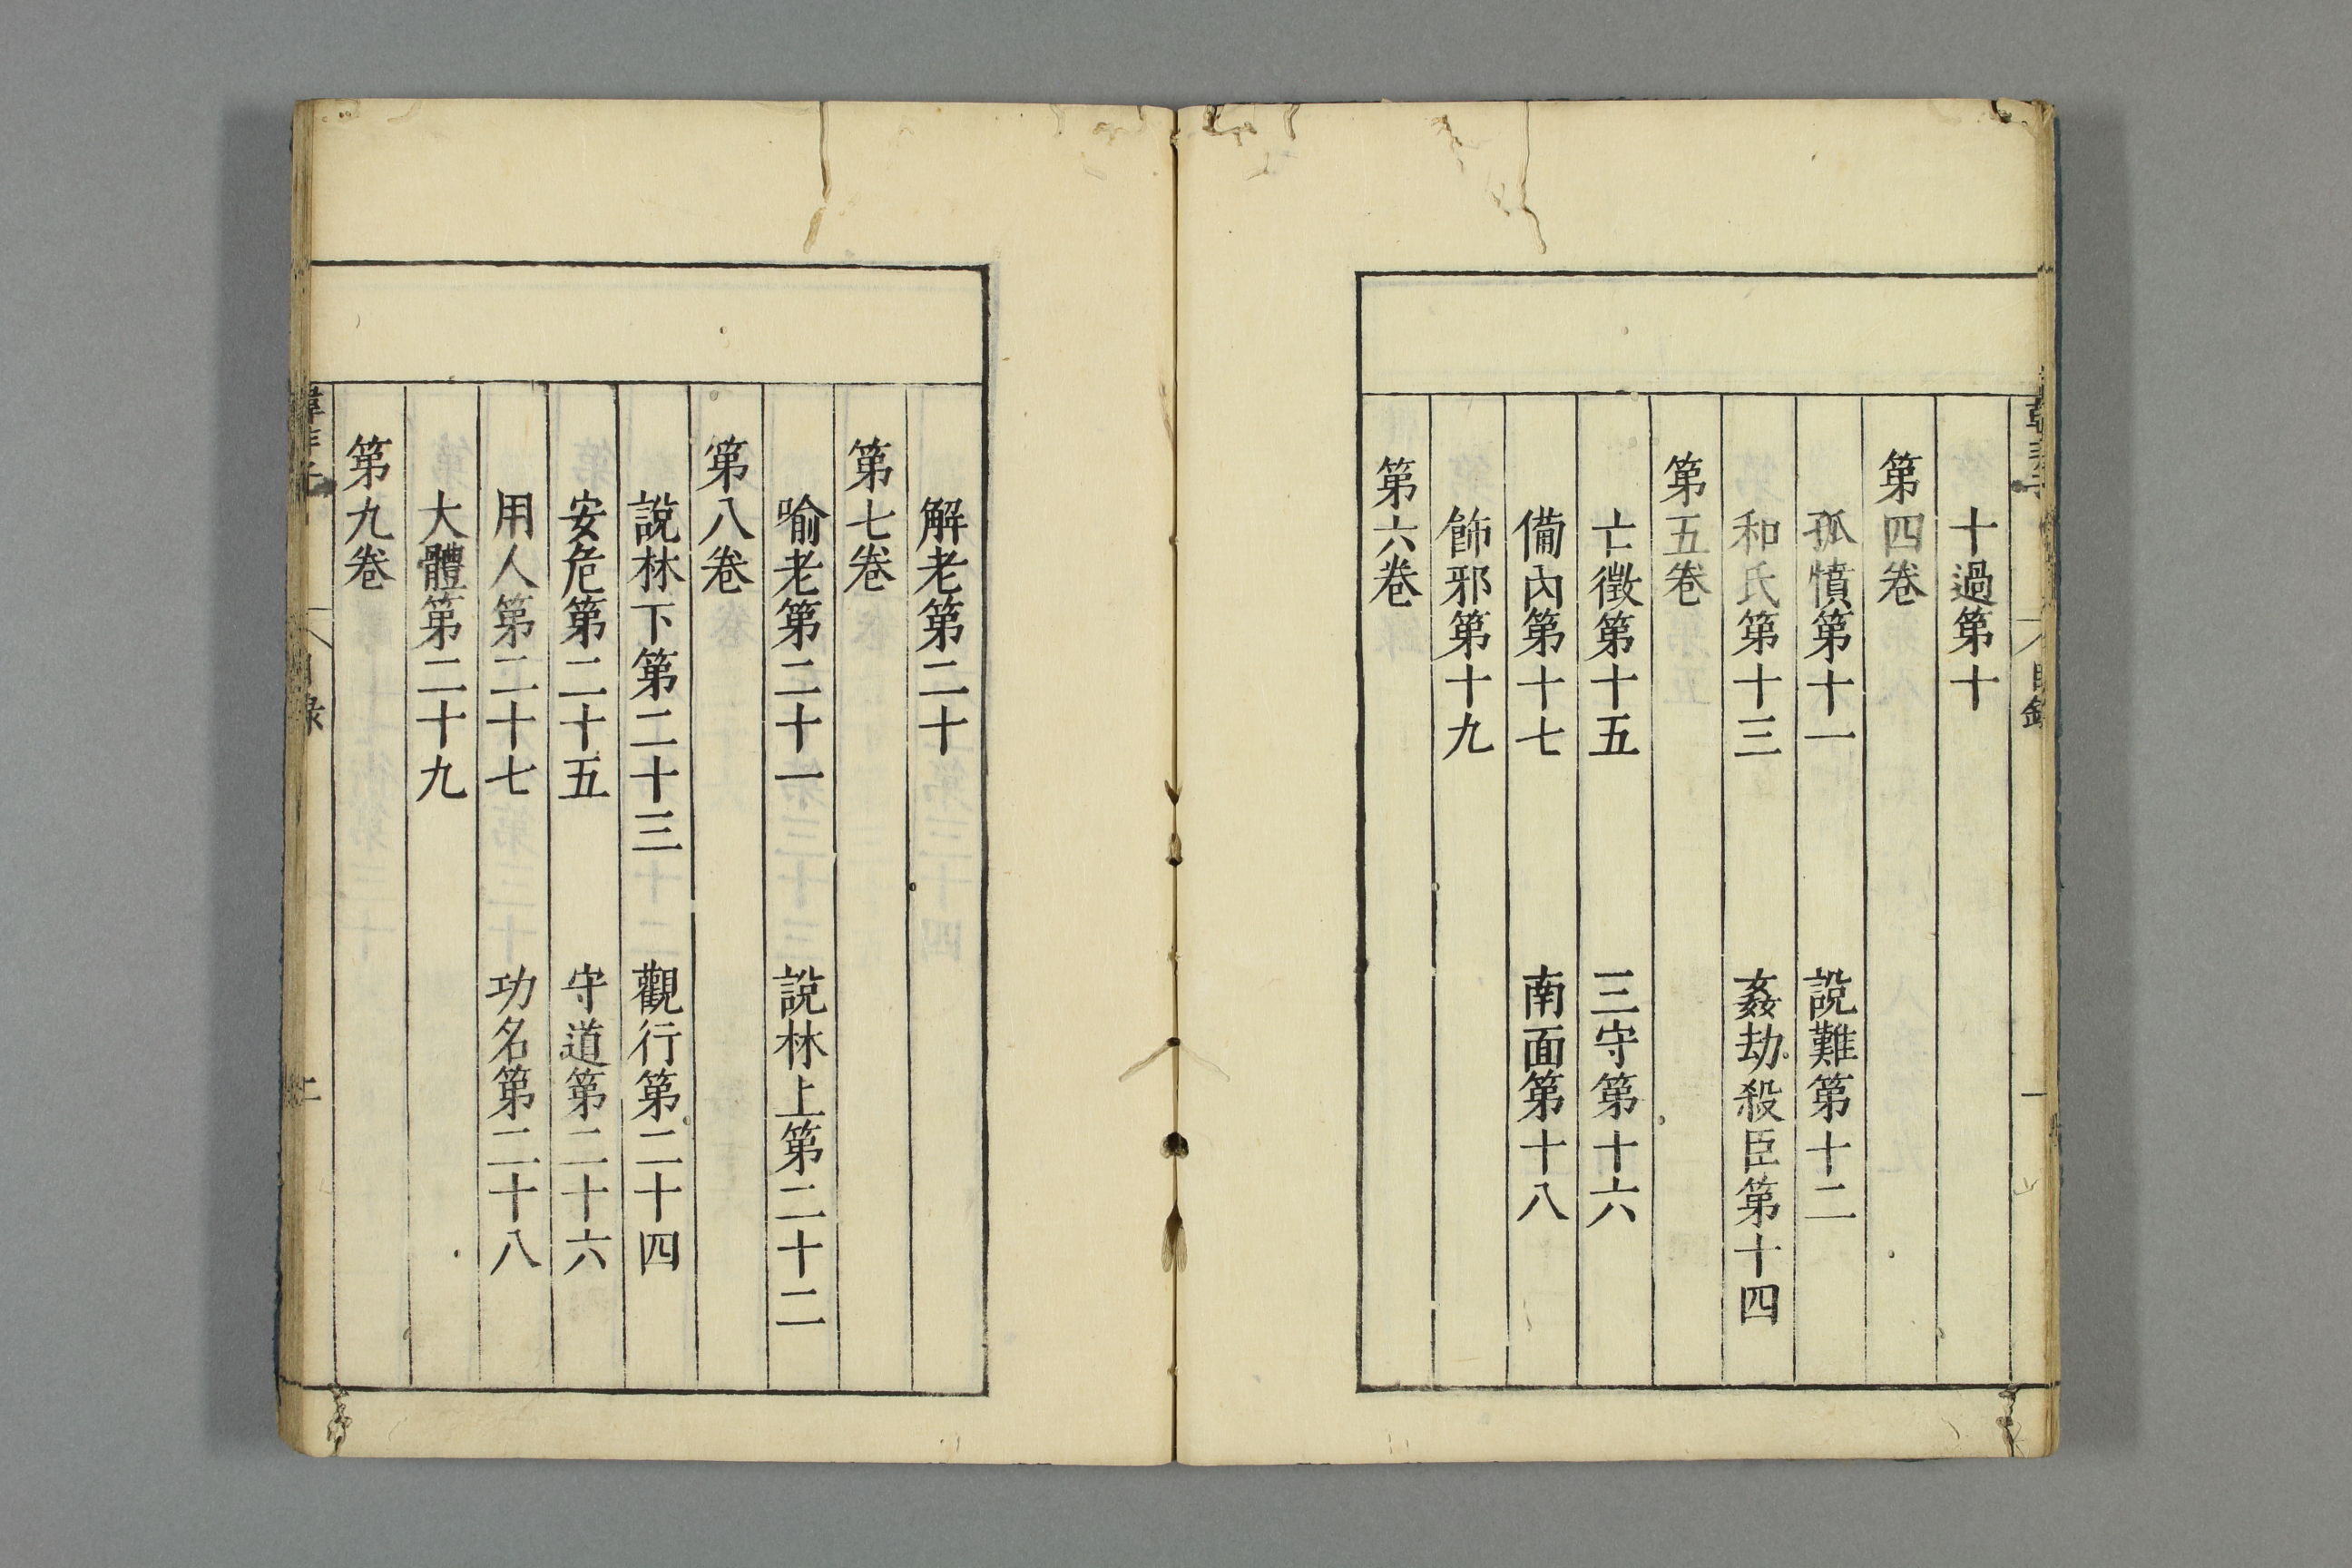 十過第十
第四卷
孤憤第十一　說難第十二
和氏第十三　姦劫殺臣第十四
第五卷
亡徵第十五　三守第十六
備內第十七　南面第十八
飾邪第十九
第六卷
解老第二十
第七卷
喻老第二十一　說林上第二十二
第八卷
說林下第二十三　觀行第二十四
安危第二十五　守道第二十六
用人第二十七　功名第二十八
大體第二十九
第九卷